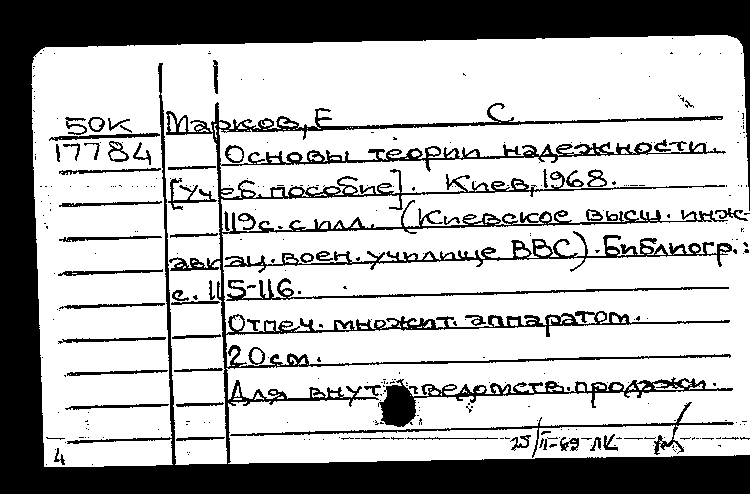 50К Марков, Е С
17784 Основы теории надежности.
[Учеб. пособие]. Киев, 1968.
119с. с илл. (Киевское высш. инж-
авиац. воен. училище ВВС). Библиогр.:
с. 115-116.
Отпеч. множит. аппаратом.
20см.
Для внут ведомств. продажи.
25/II-69 ЛК
4